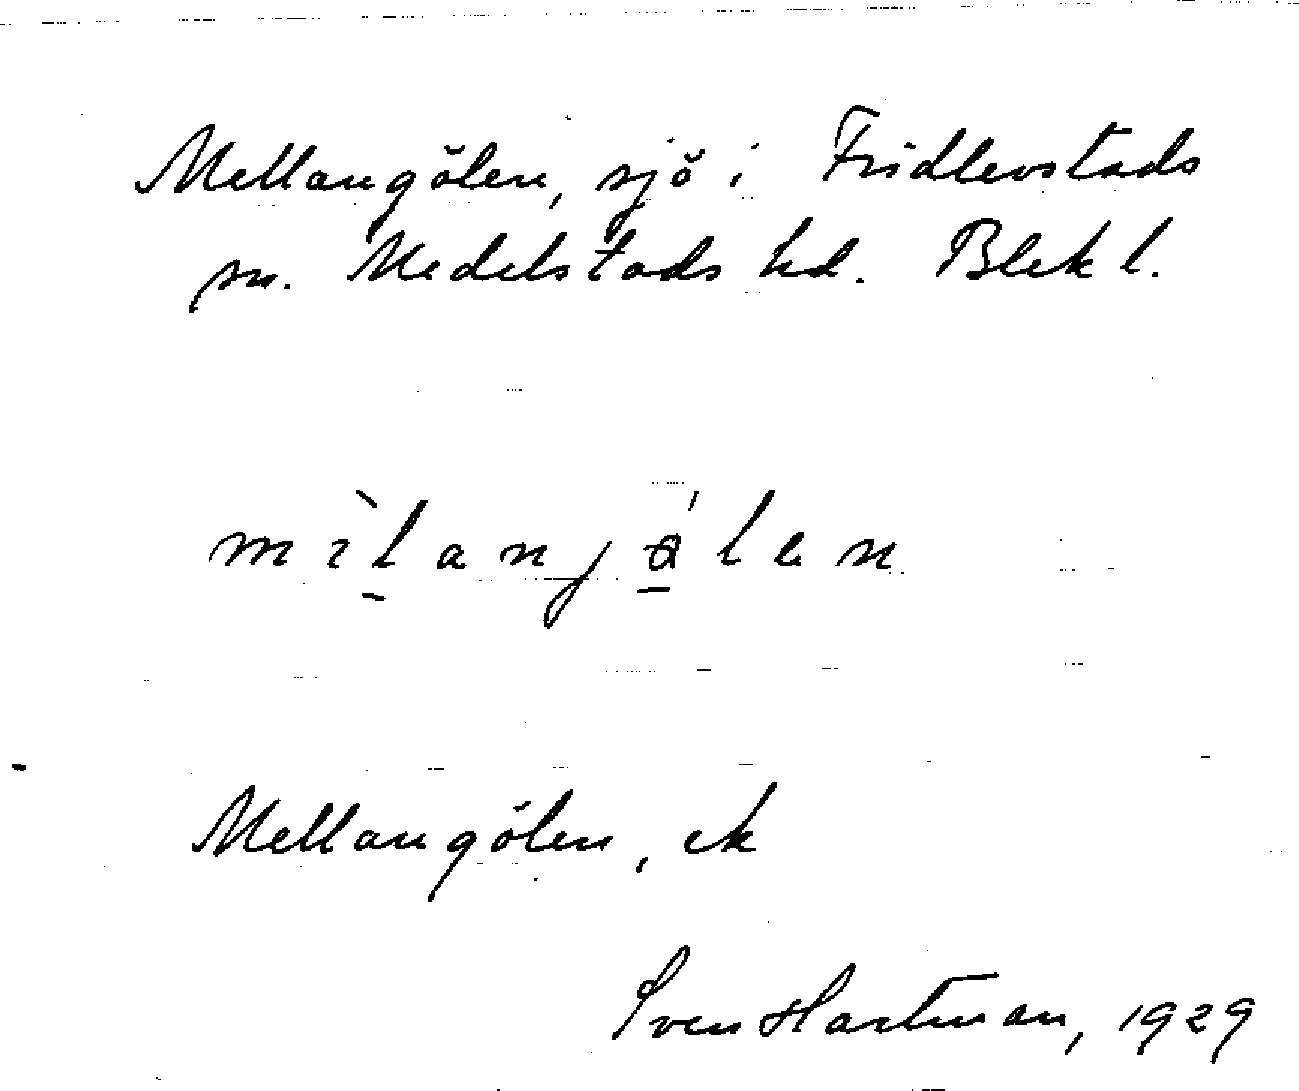 Mellangölen, sjö i Fridlevstads
sn. Medelstads hd. Blek l.
Mellangölen, ek
Sven Hartman, 1929